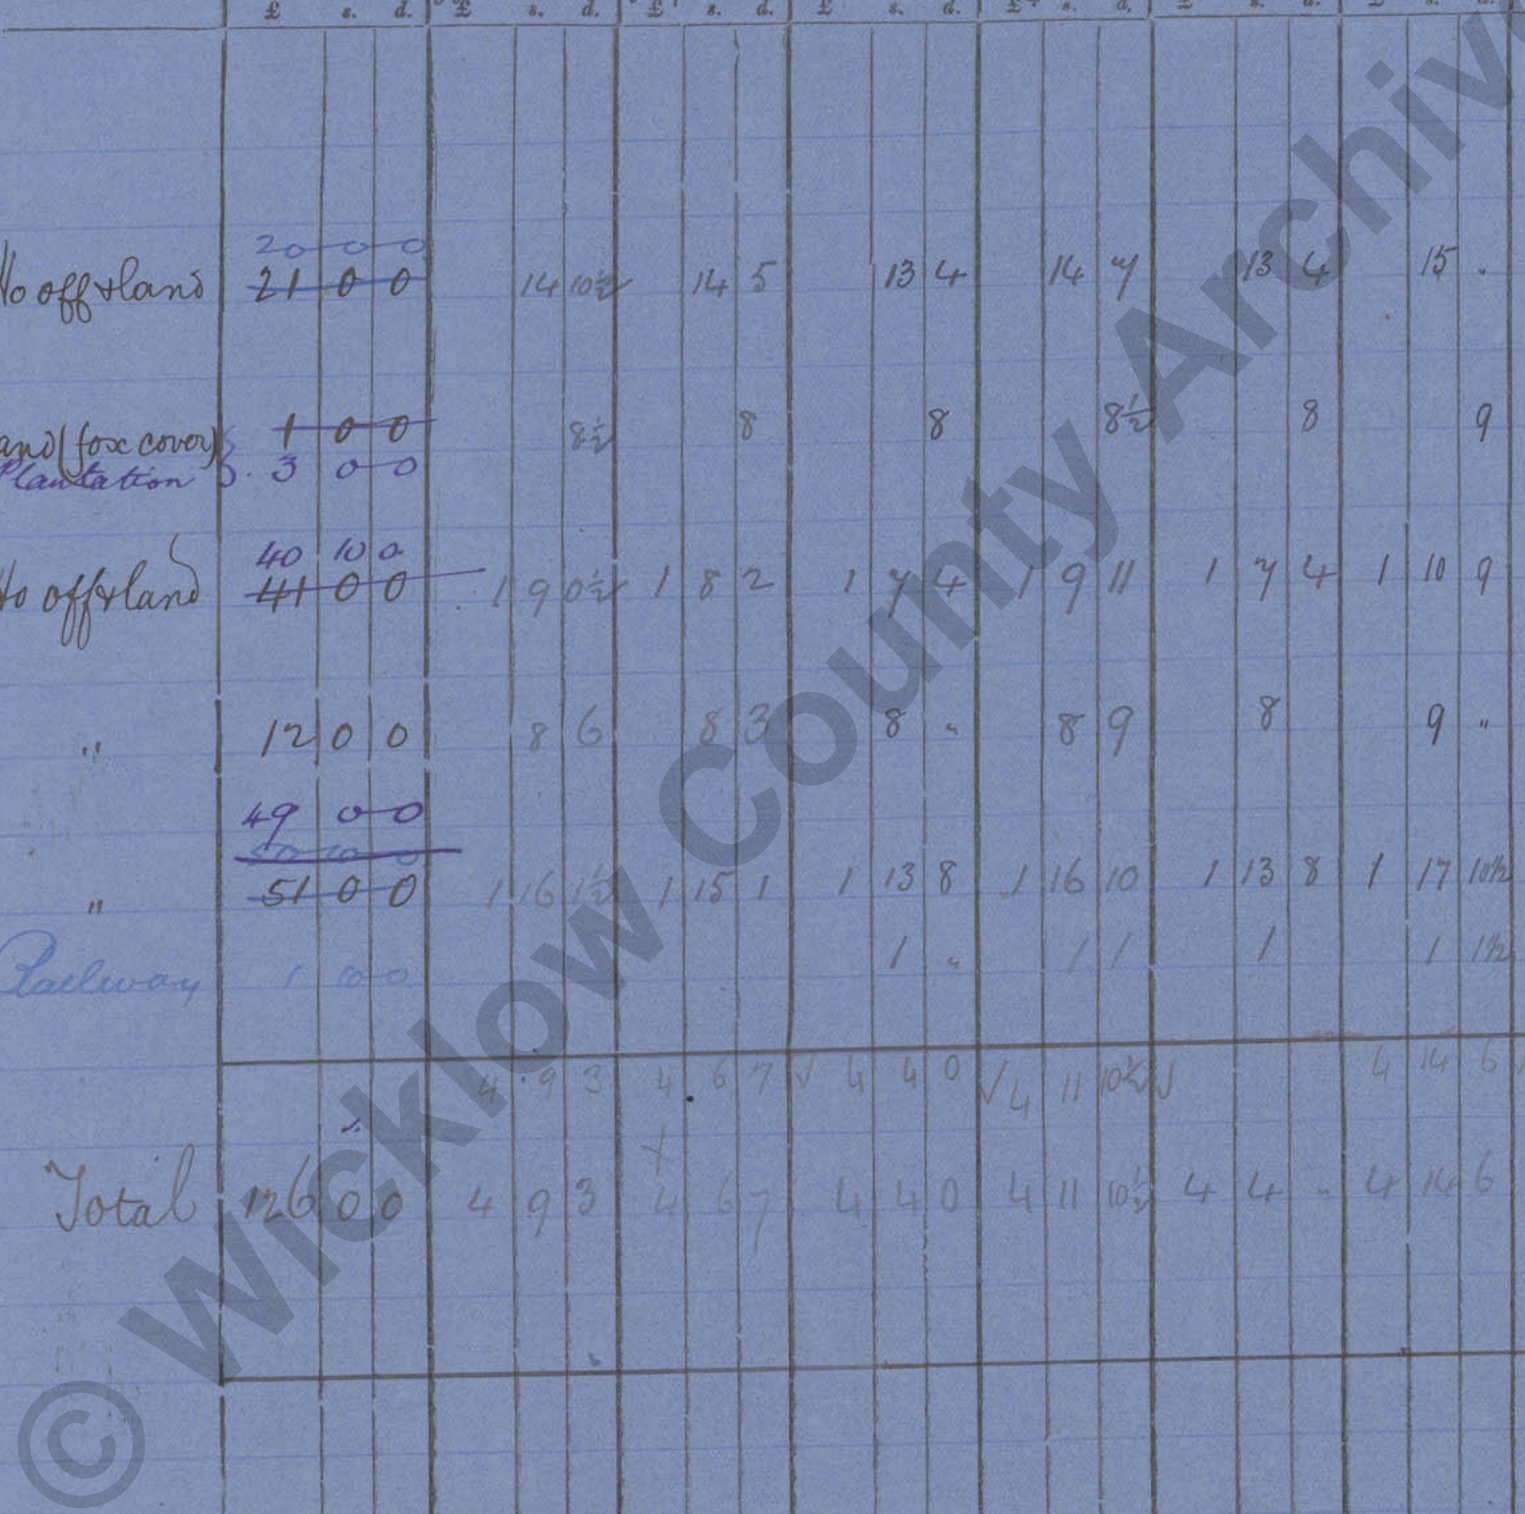 £ s. d. £ s. d. £ s. d. £ s. d. £ s. d. £ s. d. £ s. d.
20 0 0
Ho off & land 21 0 0 14 10½ 14 5 13 4 14 7 13 4 15 "
and (fox cover) 1 0 0 8½ 8 8 8½ 8 9
Plantation 3 0 0
40 10 0
Ho off & land 41 0 0 1 9 0½ 1 8 2 1 7 4 1 9 11 1 7 4 1 10 9
" 12 0 0 8 6 8 3 8 " 8 9 8 9 "
49 0 0
50 10 0
" 51 0 0 1 16 1½ 1 15 1 1 13 8 1 16 10 1 13 8 1 17 10½
Railway 1 10 0 1 " 1 1 1 1 1½
4 9 3 4 6 7 √ 4 4 0 √ 4 11 10½ √ 4 14 6
Total 126 0 0 4 9 3 4 6 7 4 4 0 4 11 10½ 4 4 " 4 14 6
© Wicklow County Archiv